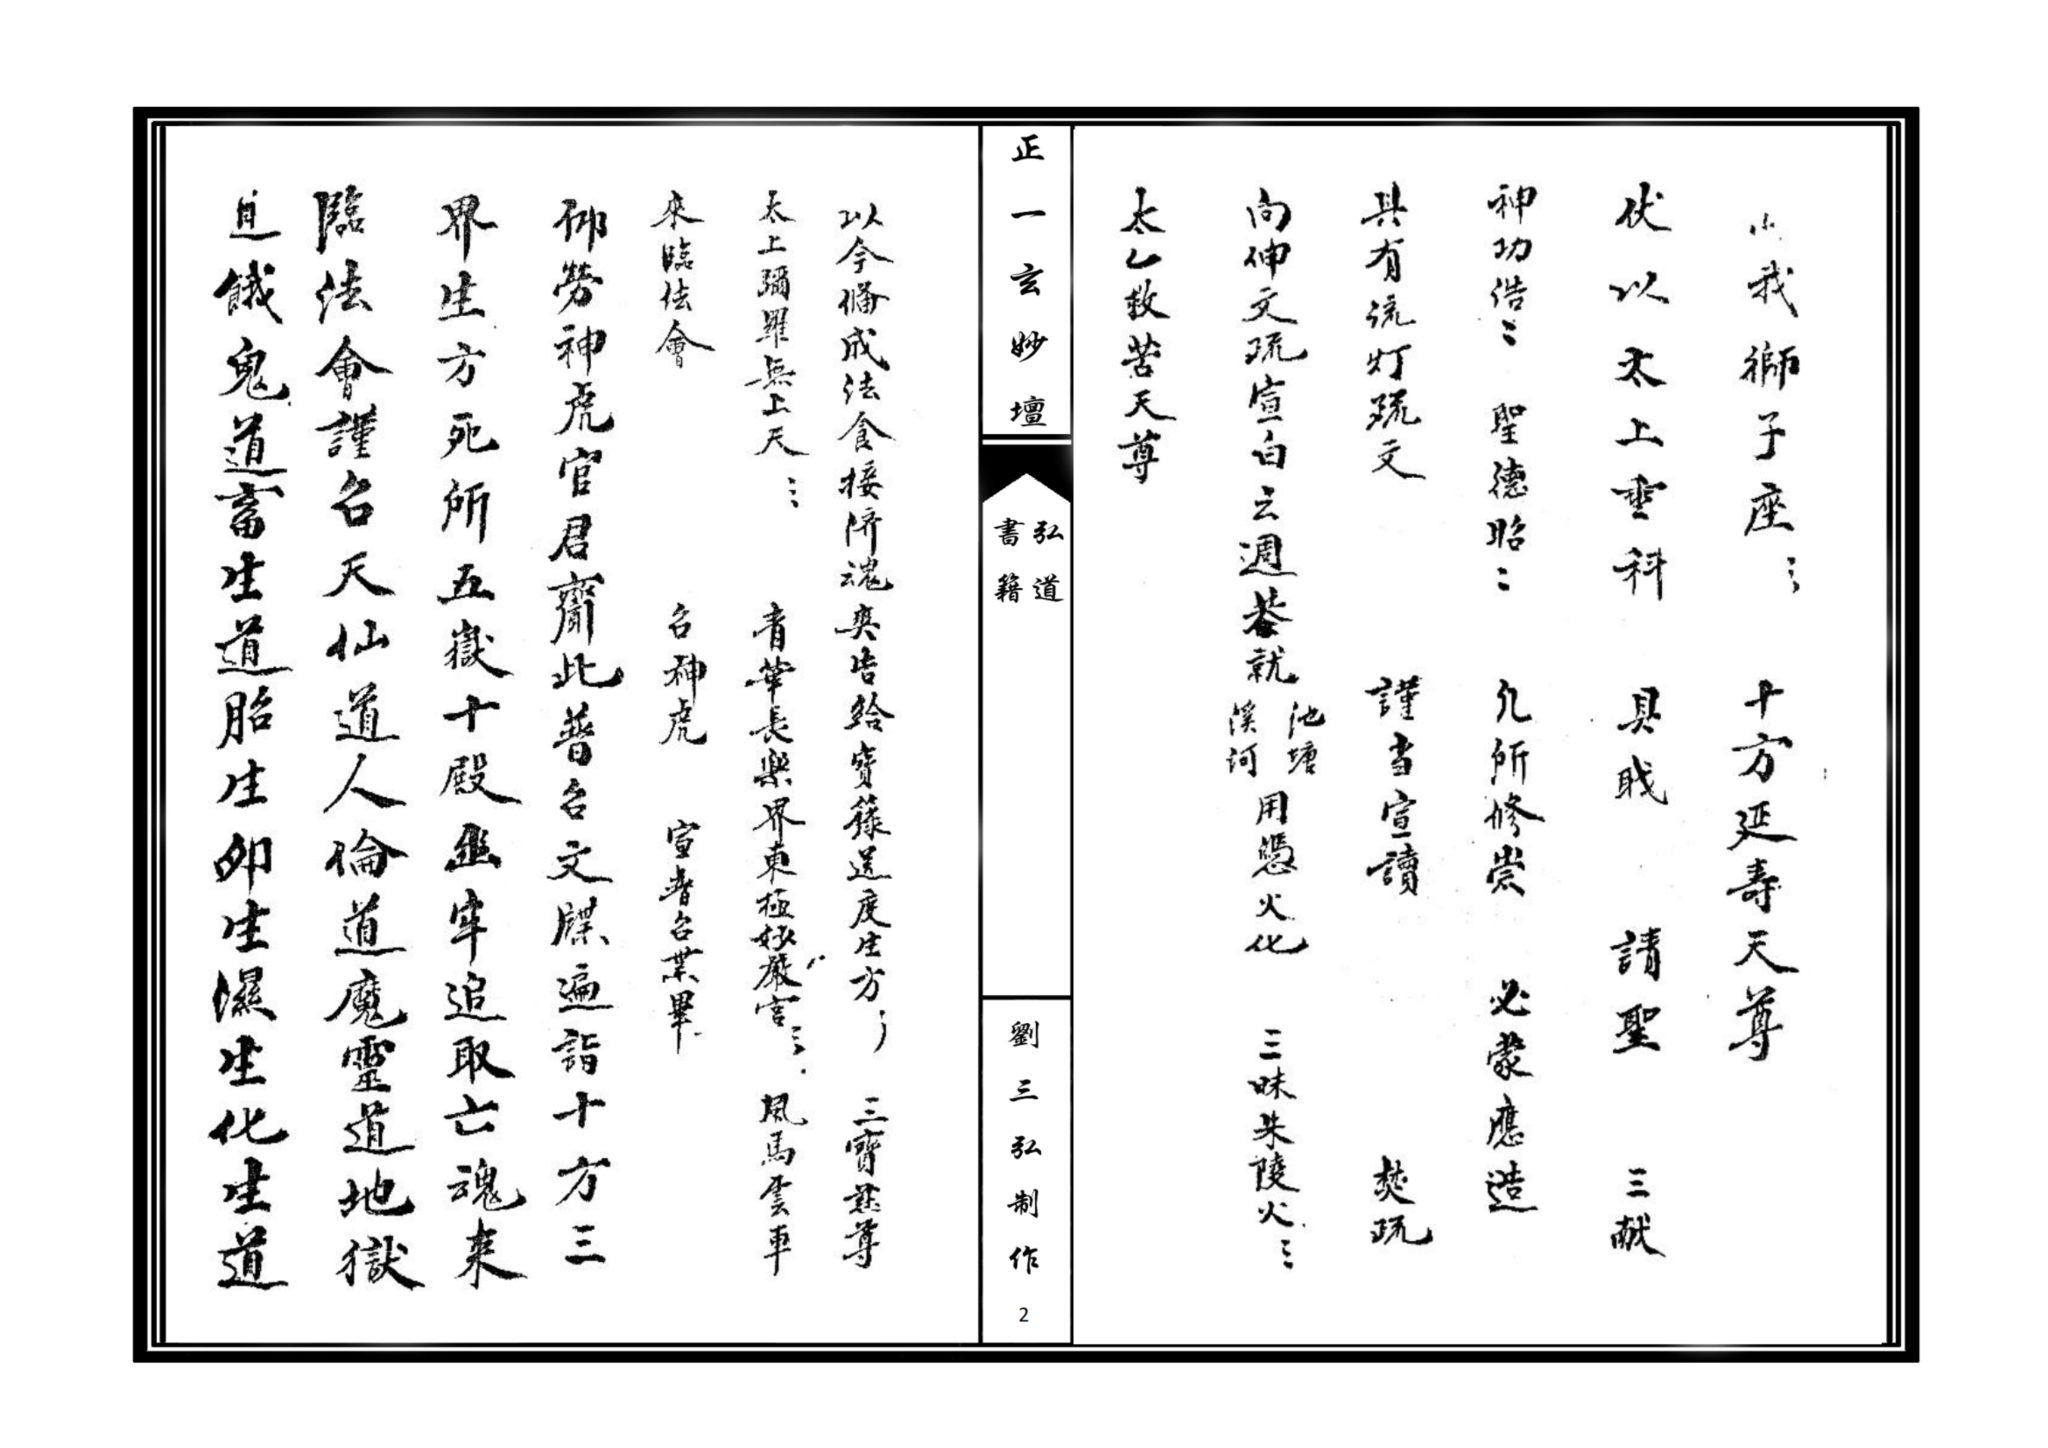 我獅子座：： 十方延壽天尊
伏以太上垂科 具戝 請聖 三献
神功浩： 聖德昭： 凡所修崇 必蒙應造
具有疏灯疏文 謹当宣讀 焚疏
向伸文疏宣白云週巻就 池塘 溪河 用憑火化 三昧朱陵火：
太乙救苦天尊
正一玄妙壇
弘道
書籍
劉三弘制作
2
以今修成法食接济魂 告給寶籙送度生方； 三寶慈尊
太上彌羅無上天： 青華長樂界東極妙嚴宮： 風馬雲車
來臨法會 召神虎 宣普召業畢
仰勞神虎官君齎此普召文牒遍詣十方三
界生方死所五嶽十殿 牢追取亡魂来
臨法會謹召天仙道人倫道魔靈道地獄
道餓鬼道畜生道胎生卵生濕生化生道